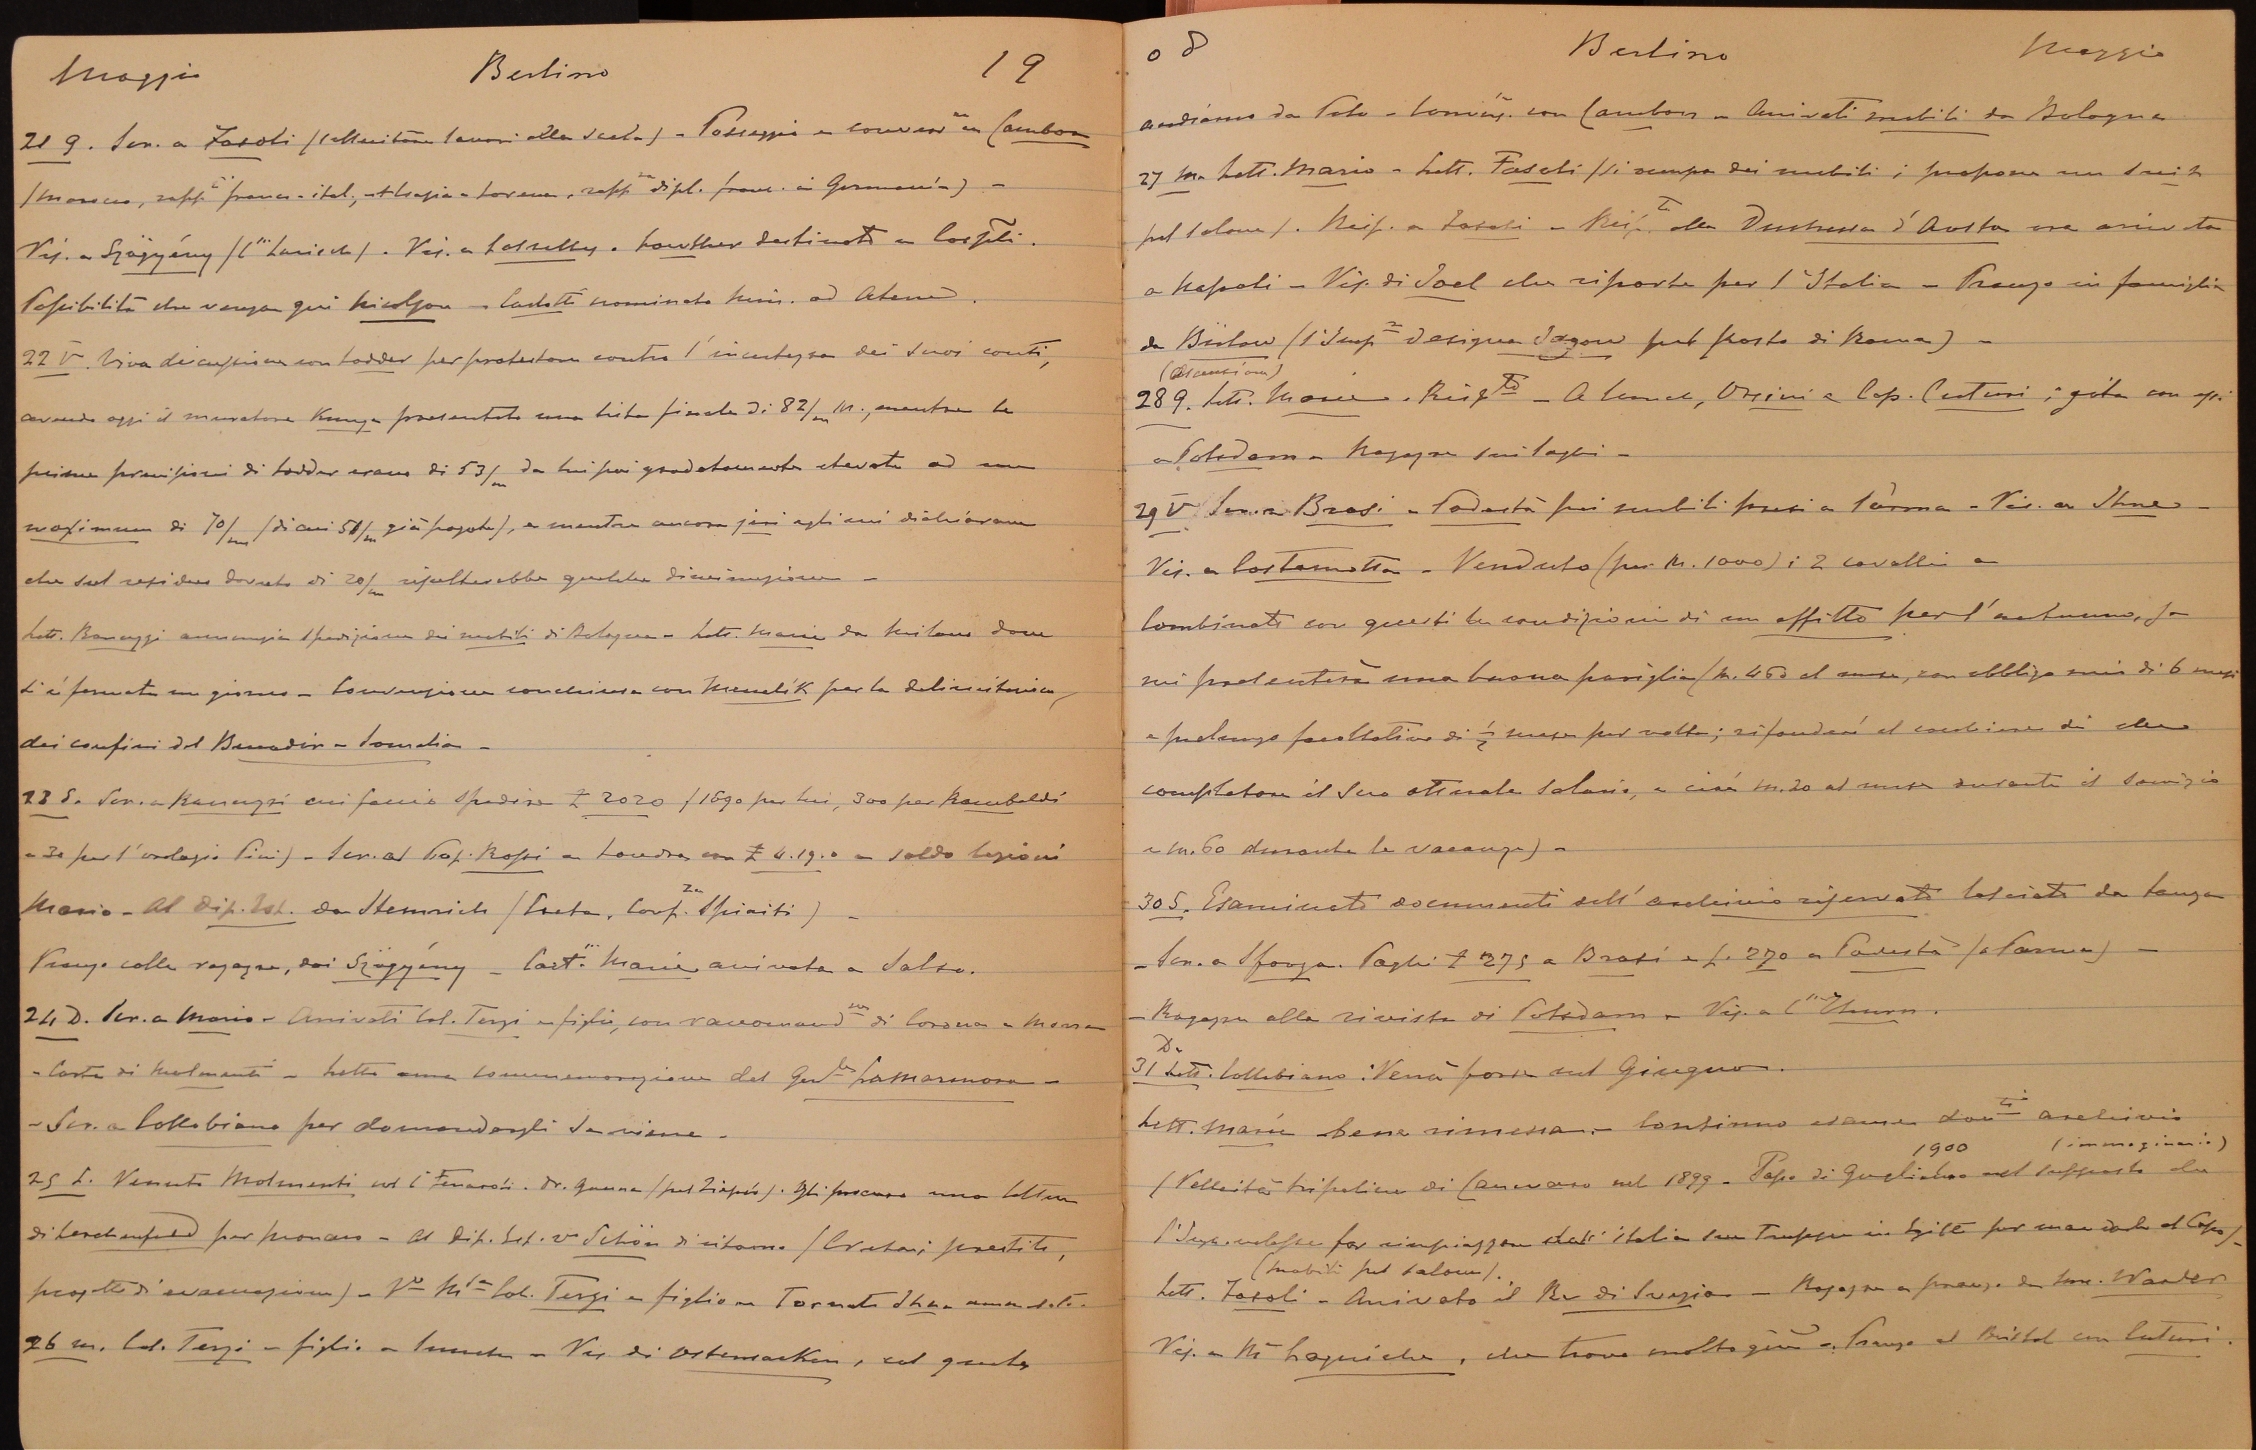 Maggio Berlino 19
21 G. Scr. a Fasoli (sollecitare lavori alla scala) - Passeggio e convers.ne con Cambon
(Marocco, rapp.ti franco-ital., Alsazia e Lorena, rapp.za dipl. franc. in Germania) -
Vis. a Szögyény (C.ssa Larisch). Vis. a Lascelles. Lowther destinato a Cos.poli.
Possibilità che venga qui Nicolson - nominato Min. ad Atene.
22 V. Viva discussione con Lodder per protestare contro l'incertezza dei suoi conti,
avendo oggi il muratore presentato una lista finale di 82/m M., mentre le
prime previsioni di Lodder erano di 53/m da lui poi gradatamente elevate ad un
maximum di 70/m (di cui 50/m già pagate), e mentre ancora jeri egli mi dichiarava
che sul residuo dovuto di 20/m risulterebbe qualche diminuzione -
Lett. Ranuzzi annunzia spedizione dei mobili di Bologna - Lett. Maria da Milano dove
si è fermata un giorno - Convenzione conchiusa con Menelik per la delimitazione
dei confini del Benadir e Somalia -
23 S. Scr. a Ranuzzi cui faccio spedire £ 2020 (1690 per lui, 300 per Rambaldi
e 30 per l'orologio Pini) - Scr. al Rossi a Londra con £ 4.19.0 a saldo lezioni
Mario - Al Dip. Est. da Stemrich (Creta, Conf.za Spiriti) -
Pranzo colle ragazze, dai Szögyény - Maria arrivata a Salso.
24 D. Scr. a Mario - Arrivati Col. Terzi e figlio, con raccomand.ne di
- Carta di Molmenti - Letta una commemorazione del Gen.le Lamarmora -
- Scr. a Collobiano per domandargli se viene -
25 L. Venuto Molmenti col C.te . Dr. . Gli procuro una lettera
di Lerchenfeld per Monaco - Al Dip. Est. v. Schön di ritorno (Cretesi, prestito,
progetto d'evacuazione) - Col. Terzi e figlio - Tornato
26 M. Col. Terzi e figlio a lunch - Vis. di Ostensacken, col quale
08 Berlino Maggio
andiamo da - Convers. con Cambon - Arrivati mobili da Bologna
27 M. Lett. Mario - Lett. Fasoli (si occupa dei mobili; propone un
pel salone). Risp. a Fasoli - alla Duchessa d'Aosta ora arrivata
a Napoli - Vis. di Joel che riparte per l'Italia - Pranzo in famiglia
da Bülow (l'Imp.re designa Jagow pel posto di Roma) -
(Ascensione)
28 G. Lett. Maria. - A lunch, Orsini e Cap. Cuturi; gita con essi
a Potsdam - Ragazze sui laghi -
29 V. Scr. a Brasi e Podestà pei mobili presi a Parma - Vis. a
Vis. a Costamotta - Venduto (per M. 1000) i 2 cavalli a
Combinate con questi le condizioni di un affitto per l'autunno,
mi presenterà una buona pariglia (M. 460 al mese, con obbligo mio di 6 mesi
e prolungo facoltativo di ½ mese per volta; rifonderà al cocchiere di che
completare il suo attuale salario, e cioè M. 20 al mese durante il servizio
e M. 60 durante le vacanze) -
30 S. Esaminati documenti dell'archivio riservato lasciati da Lanza
- Scr. a Sforza. Paghi £ 275 a Brasi e £. 270 a Podestà (a Parma) -
- Ragazze alla rivista di Potsdam - Vis. a C.ssa Thurn.
31 D. Lett. Collobiano: Verrà forse nel Giugno.
Lett. Maria bene rimessa - Continuo esame doc.ti archivio
(Velleità tripoline di Canevaro nel 1899 - Passo di Guglielmo 1900 nel supposto (immaginario) che
l'Ingh. volesse far rimpiazzare dall'Italia sue truppe in Egitto per mandarle al Capo) -
Lett. Fasoli (mobili pel salone). - Arrivato il Re di Svezia - Ragazze a pranzo da
Vis. a , che trovo molto giù - Pranzo al Bristol con Cuturi.